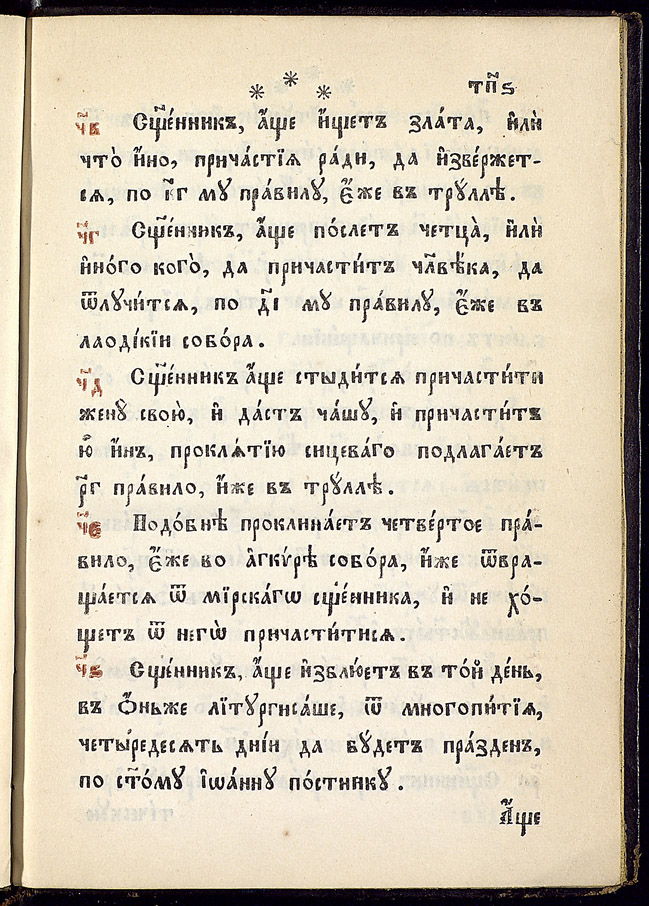 * * *
тп҃ѕ
ч҃в Сщ҃е́нникъ, а҆́ще и҆́щетъ зла́та, и҆лѝ
что̀ и҆́но, прича́стїѧ ра́ди, да и҆зве́ржет-
сѧ, по к҃г му пра́вилу, є҆́же въ трꙋ́ллѣ.
ч҃г Сщ҃е́нникъ, а҆́ще по́слетъ четца̀, и҆лѝ
и҆но́го кого̀, да причасти́тъ чл҃вѣ́ка, да
ѿлучи́тсѧ, по д҃і му пра́вилу, є҆́же въ
лаоді́кїи собо́ра.
ч҃д Сщ҃е́нникъ а҆́ще стыди́тсѧ причасти́ти
жену̀ свою̀, и҆ да́стъ ча́шу, и҆ причасти́тъ
ю҆̀ и҆́нъ, проклѧ́тїю сицева́го подлага́етъ
р҃г пра́вило, и҆́же въ тру́ллѣ.
ч҃е Подо́бнѣ проклина́етъ четве́ртое пра́-
вило, є҆́же во а҆гкѵ́рѣ собо́ра, и҆́же ѿвра-
ща́етсѧ ѿ мїрска́гѡ сщ҃е́нника, и҆ не хо́-
щетъ ѿ негѡ̀ причасти́тисѧ.
ч҃ѕ Сщ҃е́нникъ, а҆́ще и҆зблюе́тъ въ то́й де́нь,
въ ѻ҆́ньже лїтургиса́ше, ѿ многопи́тїѧ,
четы́редесѧть дні́и да бу́детъ пра́зденъ,
по ст҃о́му і҆ѡа́нну по́стнику.
А҆́ще